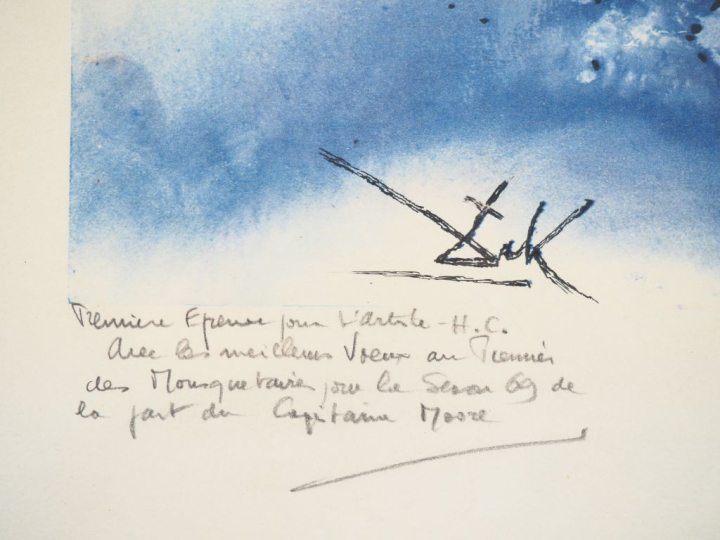 Première Epreuve pour L'artiste - H.C.
Avec les meilleurs Voeux au Premier
des Mousquetaires pour la 69 de
la part du Capitaine Moore